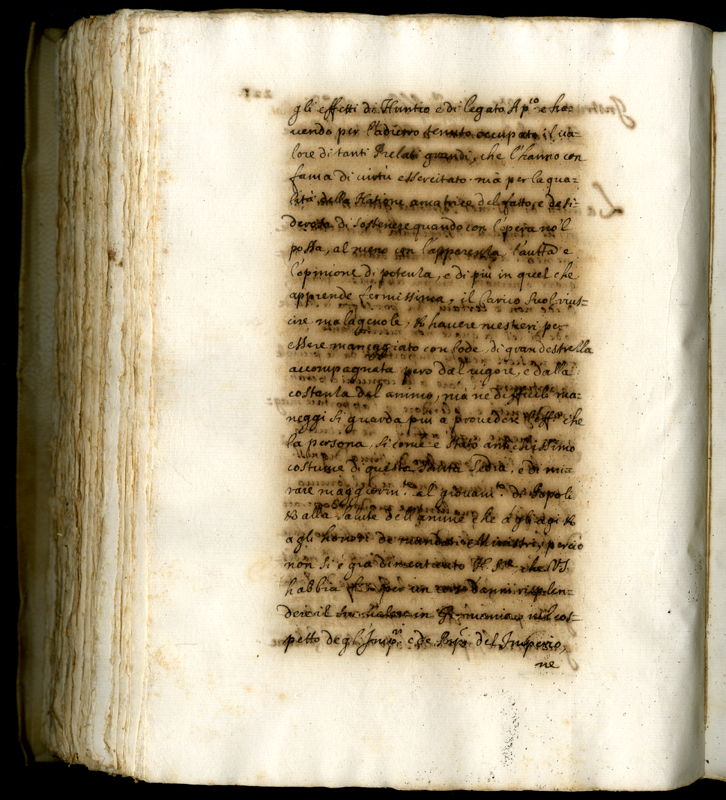 gli effetti di Nuntio e di legato Ap.co e ha-
vendo per l'adietro tenuto occupato il va-
lore di tanti Prelati grandi, che l'hanno con
fama di virtù essercitato. mà per la qua-
lità della Natione amatrice del fatto, e desi-
derosa di sostenere quando con l'opera nō 'l
possa, al meno con l'apparenza, l'autt.à e
l'opinione di potenza, e di più in quel che
apprende fermissima, il Carico suol rius-
cire malagevole, & havere mestieri per
essere maneggiato con lode, di gran destrezza
accompagnata però dal vigore, e dalla
costanza del animo, mà ne difficili ma-
neggi si guarda più a provedere che
la persona, si come è stato antichissimo
costume di questa Santa Sedia, e di mi-
rare maggiorm.te al giovam.to di Popoli
& alla salute dell'anime che agli agi &
agli honori de Ministri, perciò
non si è già dimenticato N. S.re che VS.
habbia per un corso d'anni risplen-
dere il suo valore in Germania nel cos-
petto degl'Imp.ri e de Pnp.i del Imperio,
ne